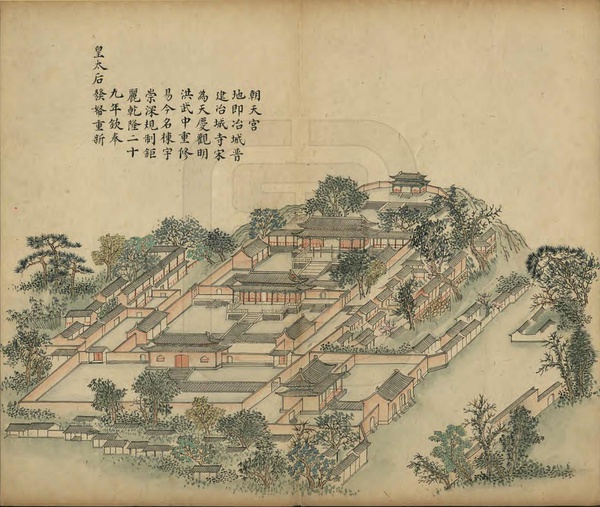 朝天宮
地即冶城晉
建冶城寺宋
為天慶觀明
洪武中重修
易今名棟宇
崇深規制鉅
麗乾隆二十
九年欽奉
皇太后發帑重新